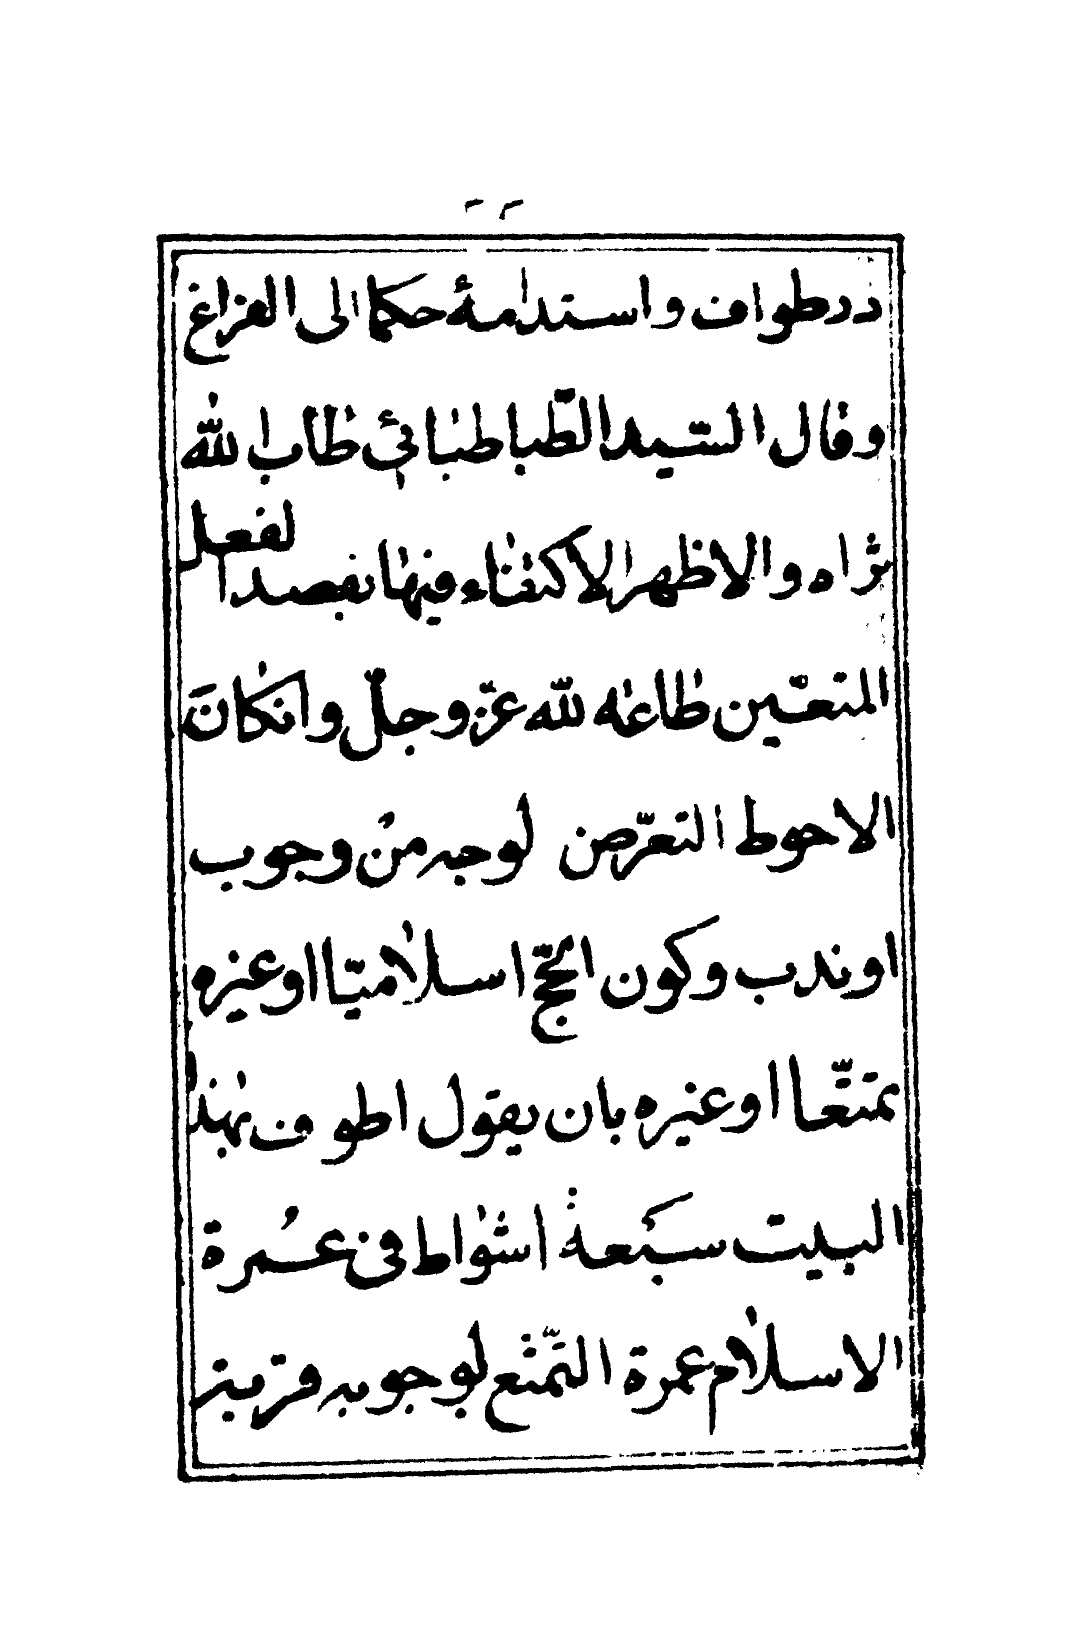 ٢٢
در طواف و استدامۀ حکما الی الفراغ
وقال السّید الطّباطبائی طاب الله
ثراه والاظهر الاکتفاء فیها بقصد الفعل
المتعیّن طاعه لله عزّ وجلّ وانکان
الاحوط التعرّض لوجه من وجوب
او ندب وکون الحجّ اسلامیّا او غیره
تمتّعا او غیره بان یقول اطوف بهذا
البیت سبعة اشواط فی عمرة
الاسلام عمرة التّمتّع لوجوبه قربة